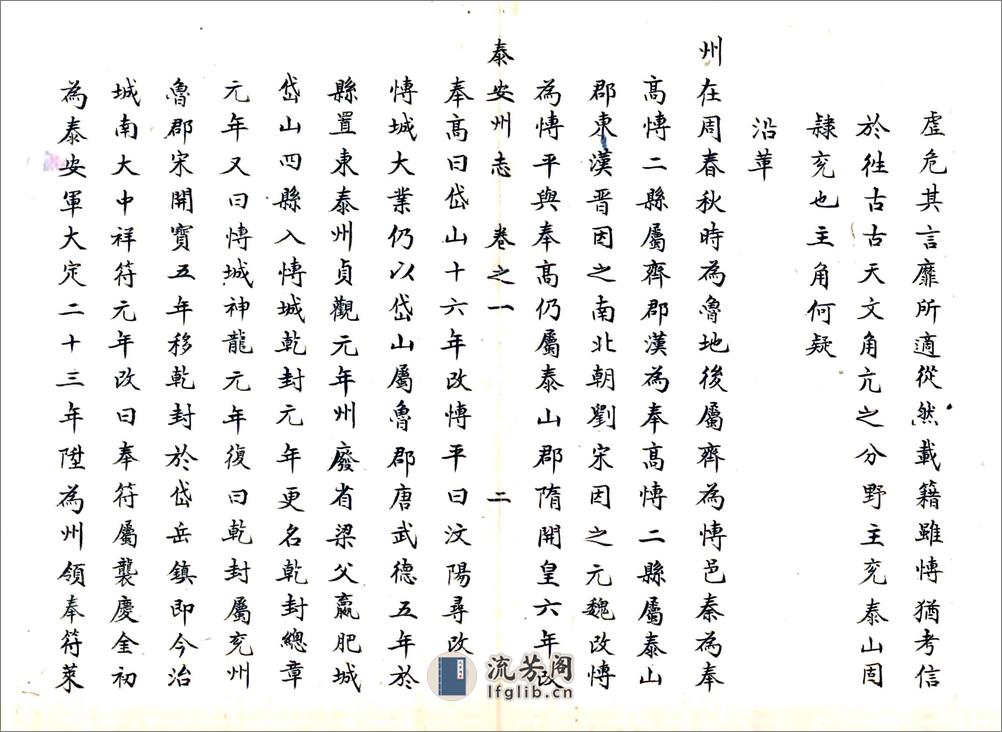 虗危其言靡所適從然載籍雖愽猶考信
於徃古古天文角亢之分野主兖泰山固
隸兖也主角何疑
沿革
州在周春秋時為魯地後屬齊為愽邑秦為奉
髙愽二縣屬齊郡漢為奉髙愽二縣屬泰山
郡東漢晋因之南北朝劉宋因之元魏改愽
為愽平與奉髙仍屬泰山郡隋開皇六年改
泰安州志 卷之一 二
奉髙曰岱山十六年改愽平曰汶陽尋改
愽城大業仍以岱山屬魯郡唐武德五年於
縣置東泰州貞觀元年州廢省梁父嬴肥城
岱山四縣入愽城乾封元年更名乾封總章
元年又曰愽城神龍元年復曰乾封屬兖州
魯郡宋開寶五年移乾封於岱岳鎮即今治
城南大中祥符元年改曰奉符屬襲慶金初
為泰安軍大定二十三年陞為州領奉符萊
流芳阁
lfglib.cn